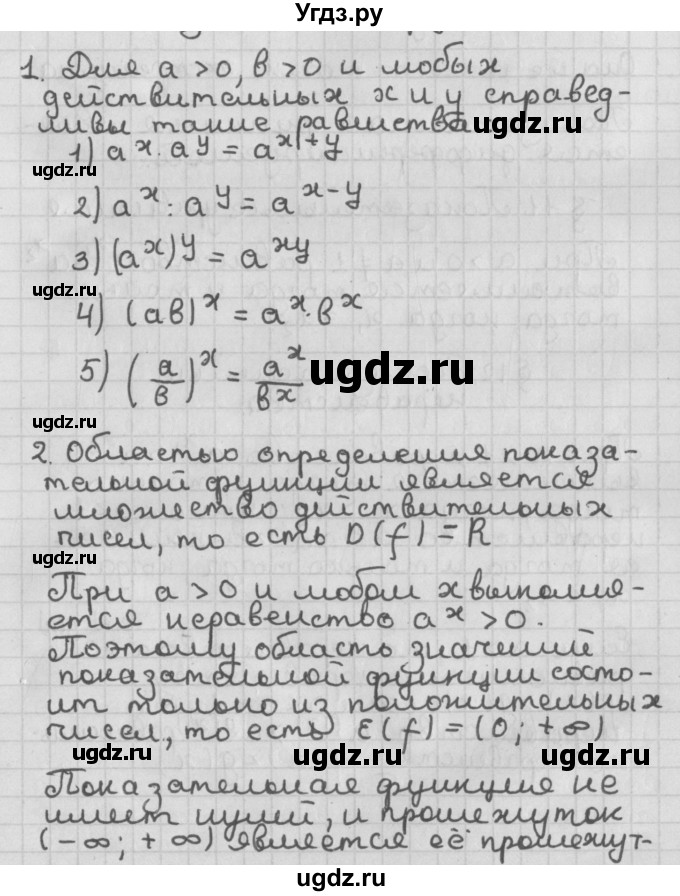 Угдз.ру
1. Для a > 0, в > 0 и любых
действительных x и y справед-
ливы такие равенства
1) a^x · a^y = a^(x+y)
2) a^x : a^y = a^(x-y)
3) (a^x)^y = a^(xy)
4) (ав)^x = a^x · в^x
5) (a/в)^x = a^x/в^x
2. Областью определения показа-
тельной функции является
множество действительных
чисел, то есть D(f) = R
При a > 0 и любом x выполня-
ется неравенство a^x > 0.
Поэтому область значений
показательной функции состо-
ит только из положительных
чисел, то есть E(f) = (0; +∞)
Показательная функция не
имеет нулей, и промежуток
(-∞; +∞) является её промежут-
ugdz.ru
ugdz.ru
ugdz.ru
ugdz.ru
ugdz.ru
ugdz.ru
ugdz.ru
ugdz.ru
ugdz.ru
ugdz.ru
ugdz.ru
ugdz.ru
ugdz.ru
ugdz.ru